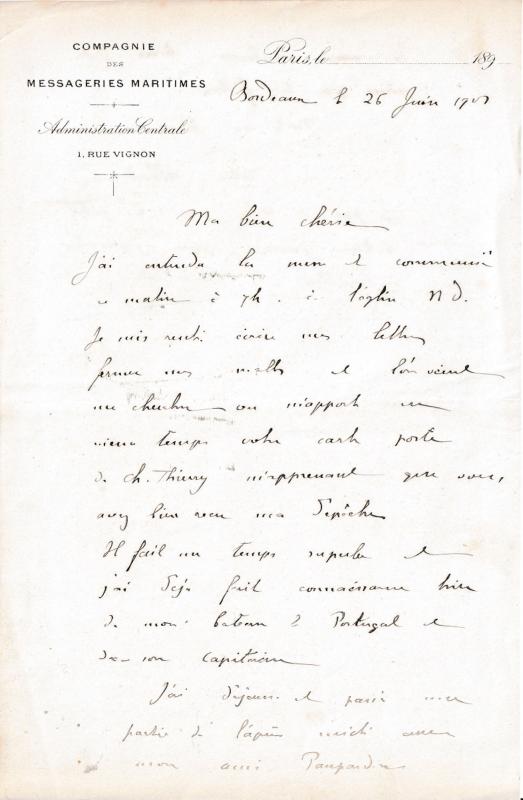 COMPAGNIE
DES
MESSAGERIES MARITIMES
Administration Centrale
1, RUE VIGNON
Paris, le 189
Bordeaux le 26 Juin
Ma bien chérie
J'ai entendu la messe et communié
ce matin à 7h. à l'église N D.
Je suis rentré écrire mes lettres
fermer mes malles et l'on vient
me chercher on m'apporte en
même temps votre carte poste
de Ch. Thierry m'apprenant que vous
avez bien reçu ma dépêche
Il fait un temps superbe et
j'ai déjà fait connaissance hier
de mon bateau le Portugal et
de son capitaine
J'ai déjeuné et passé une
partie de l'après midi avec
mon ami